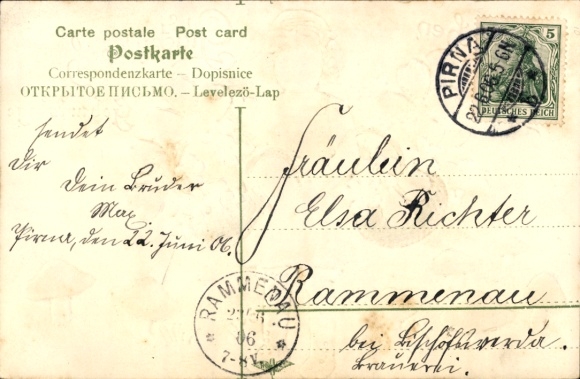 Carte postale Post card
Postkarte
Correspondenzkarte – Dopisnice
ОТКРЫТОЕ ПИСЬМО. – Levelező-Lap
sendet
Dir
Dein Bruder
Max
Pirna, den 22. Juni 06.
5
DEUTSCHES REICH
PIRNA
22.6.06. 5-6N.
Fräulein
Elsa Richter
Rammenau
bei Bischofswerda.
Brauerei.
RAMMENAU
06
7-8V.